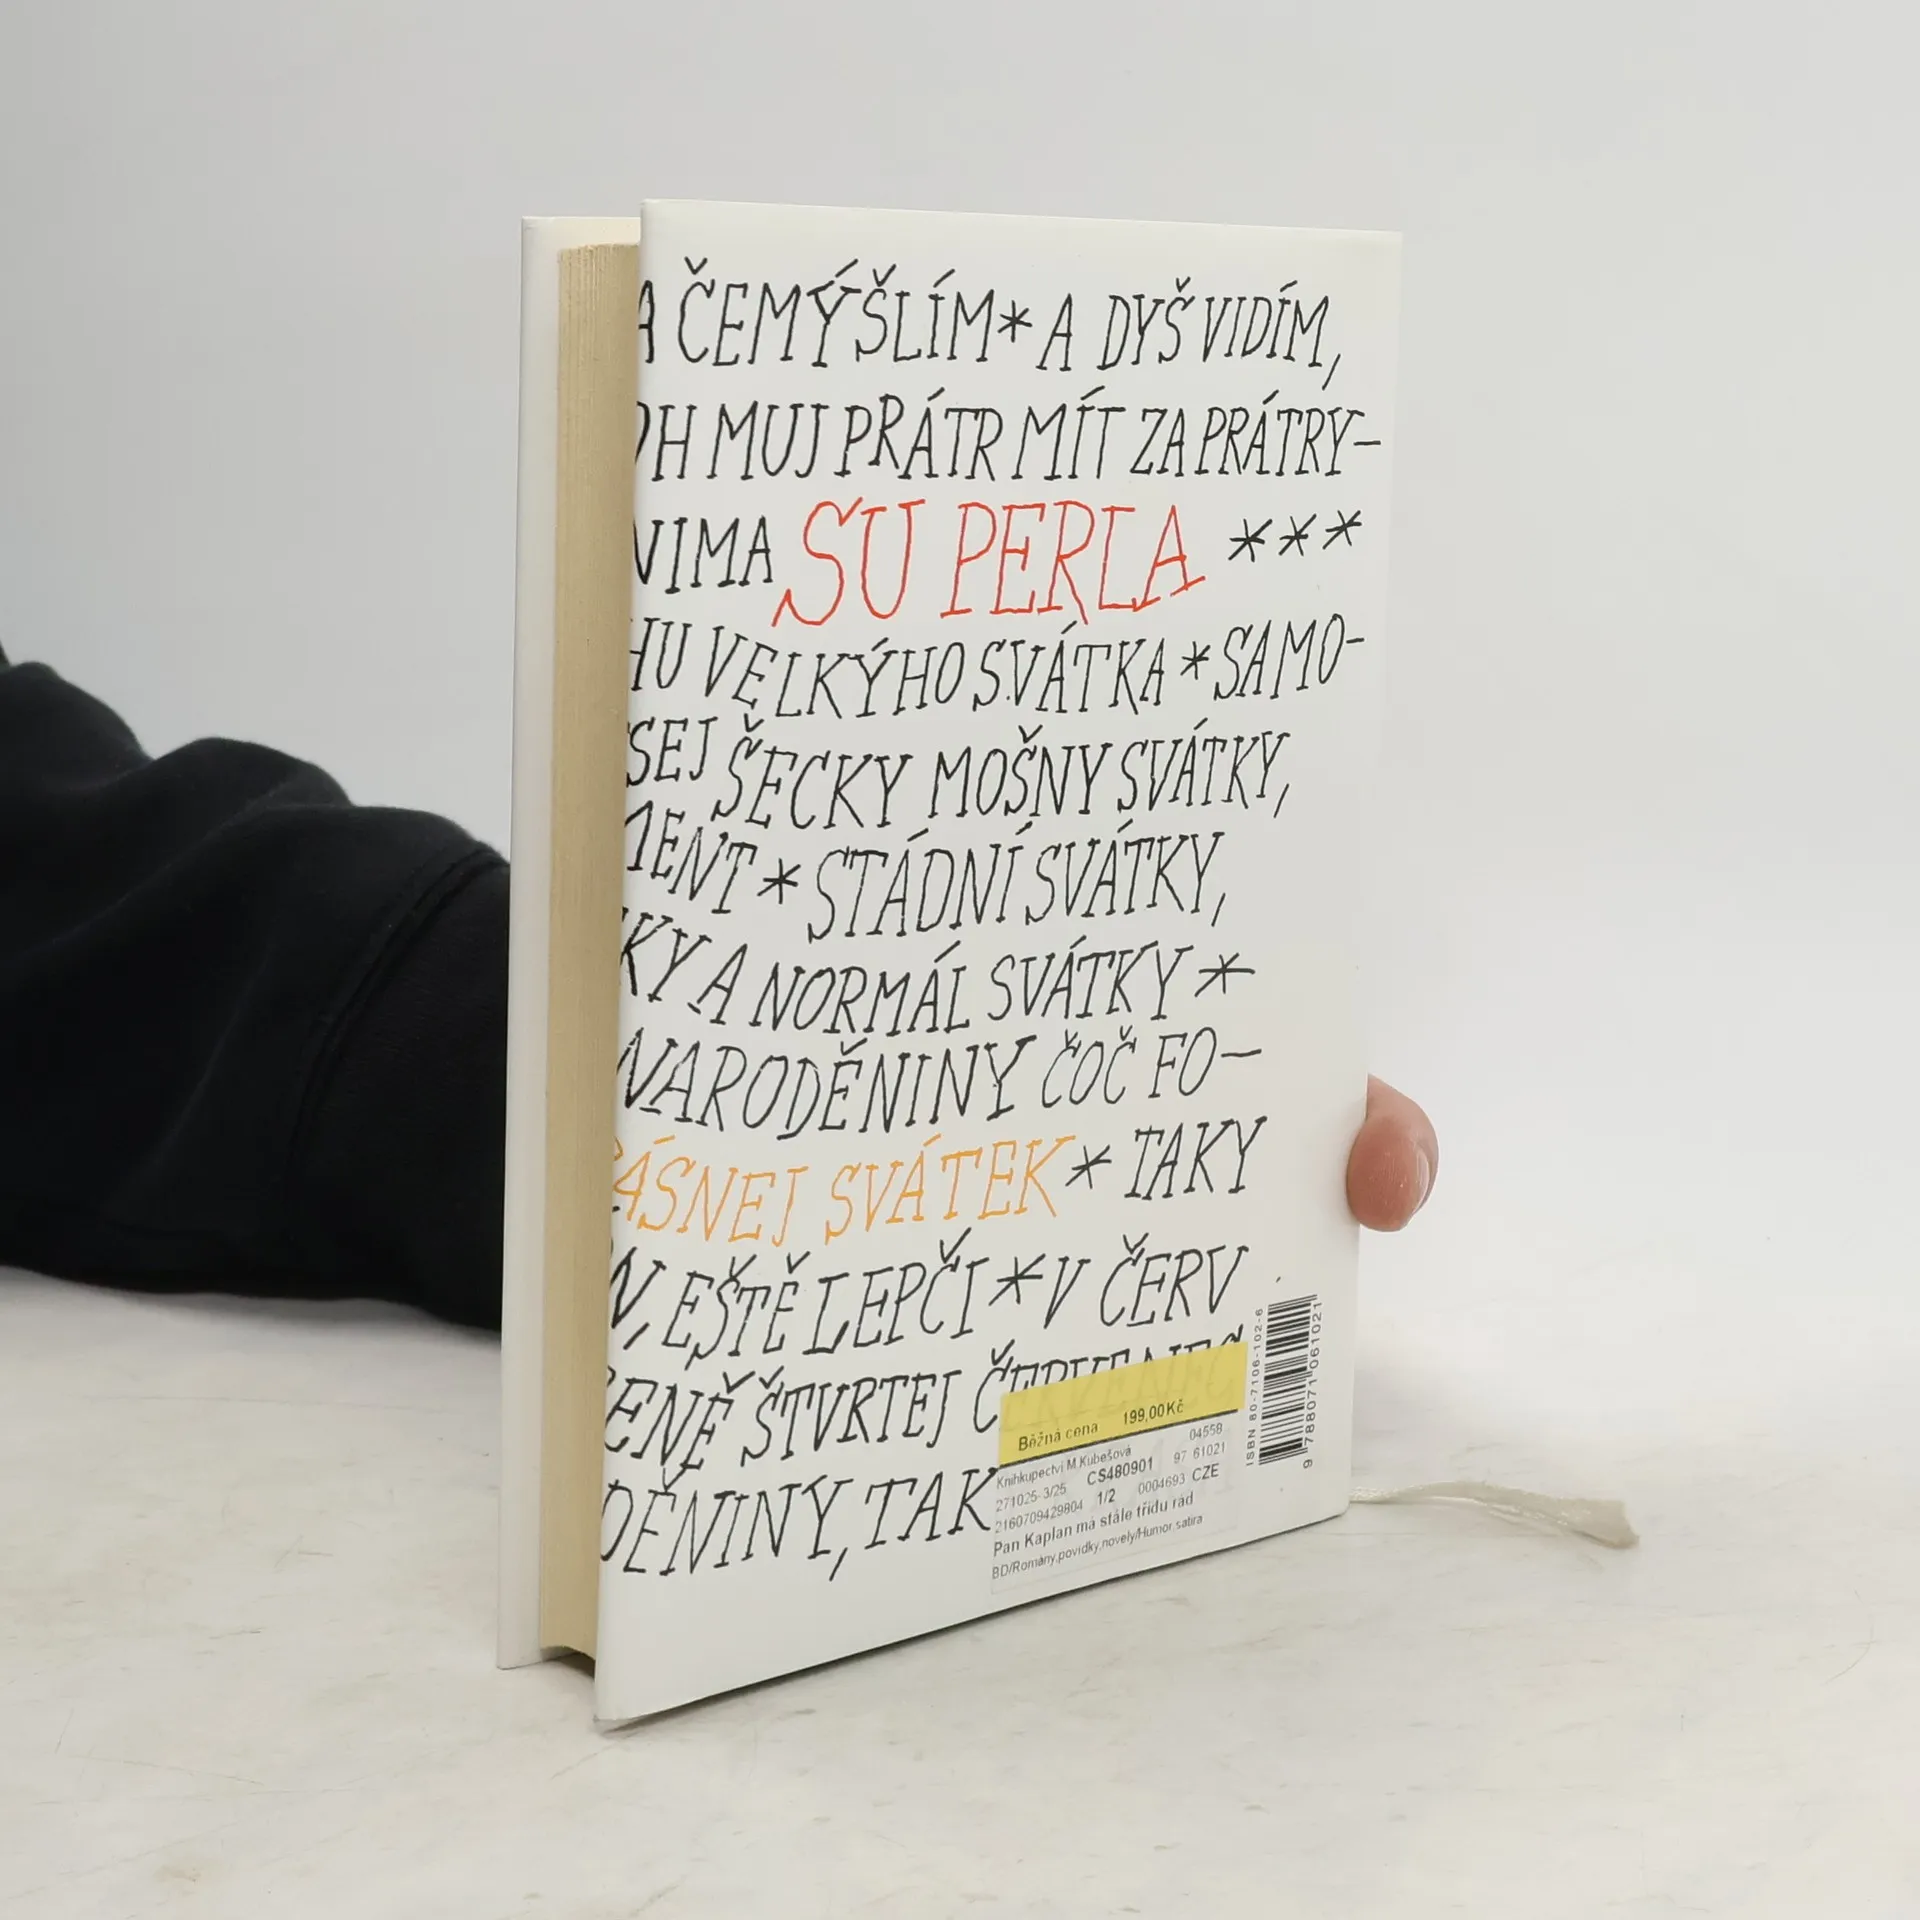 A ČEMÝŠLÍM * A DYŠ VIDÍM,
OH MUJ PRÁTR MÍT ZA PRÁTRY-
NIMA SU PERLA ***
HU VELKÝHO SVÁTKA * SAMO-
SEJ ŠECKY MOŠNY SVÁTKY,
MENT * STÁDNÍ SVÁTKY,
KY A NORMÁL SVÁTKY *
NARODĚNINY ČOČ FO-
ÁSNEJ SVÁTEK * TAKY
N, EŠTĚ LEPČI * V ČERV
ENĚ ŠTVRTEJ ČERVENEC
DĚNINY, TAK
Běžná cena 199,00 Kč
Knihkupectví M.Kubešová 04558
271025-3/25 CS480901 97 61021
2160709429804 1/2 0004693 CZE
Pan Kaplan má stále třídu rád
BD/Romány,povídky,novely/Humor, satira
ISBN 80-7106-102-6
9 788071 061021